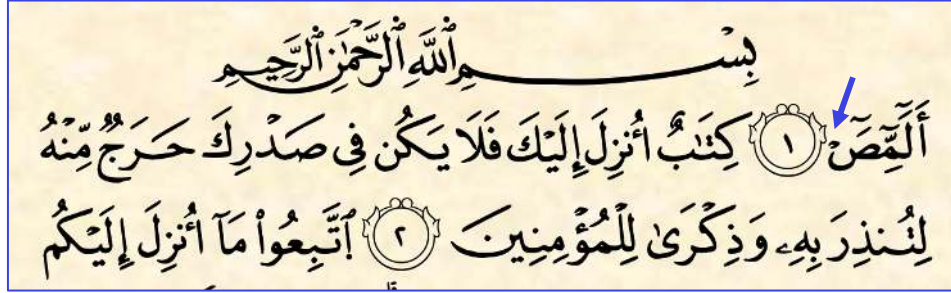 بِسْمِ ٱللَّهِ ٱلرَّحْمَٰنِ ٱلرَّحِيمِ
أَلَٓمِّٓصَٓ ۝١ كِتَٰبٌ أُنزِلَ إِلَيْكَ فَلَا يَكُن فِى صَدْرِكَ حَرَجٌ مِّنْهُ
لِتُنذِرَ بِهِۦ وَذِكْرَىٰ لِلْمُؤْمِنِينَ ۝٢ ٱتَّبِعُوا۟ مَآ أُنزِلَ إِلَيْكُم